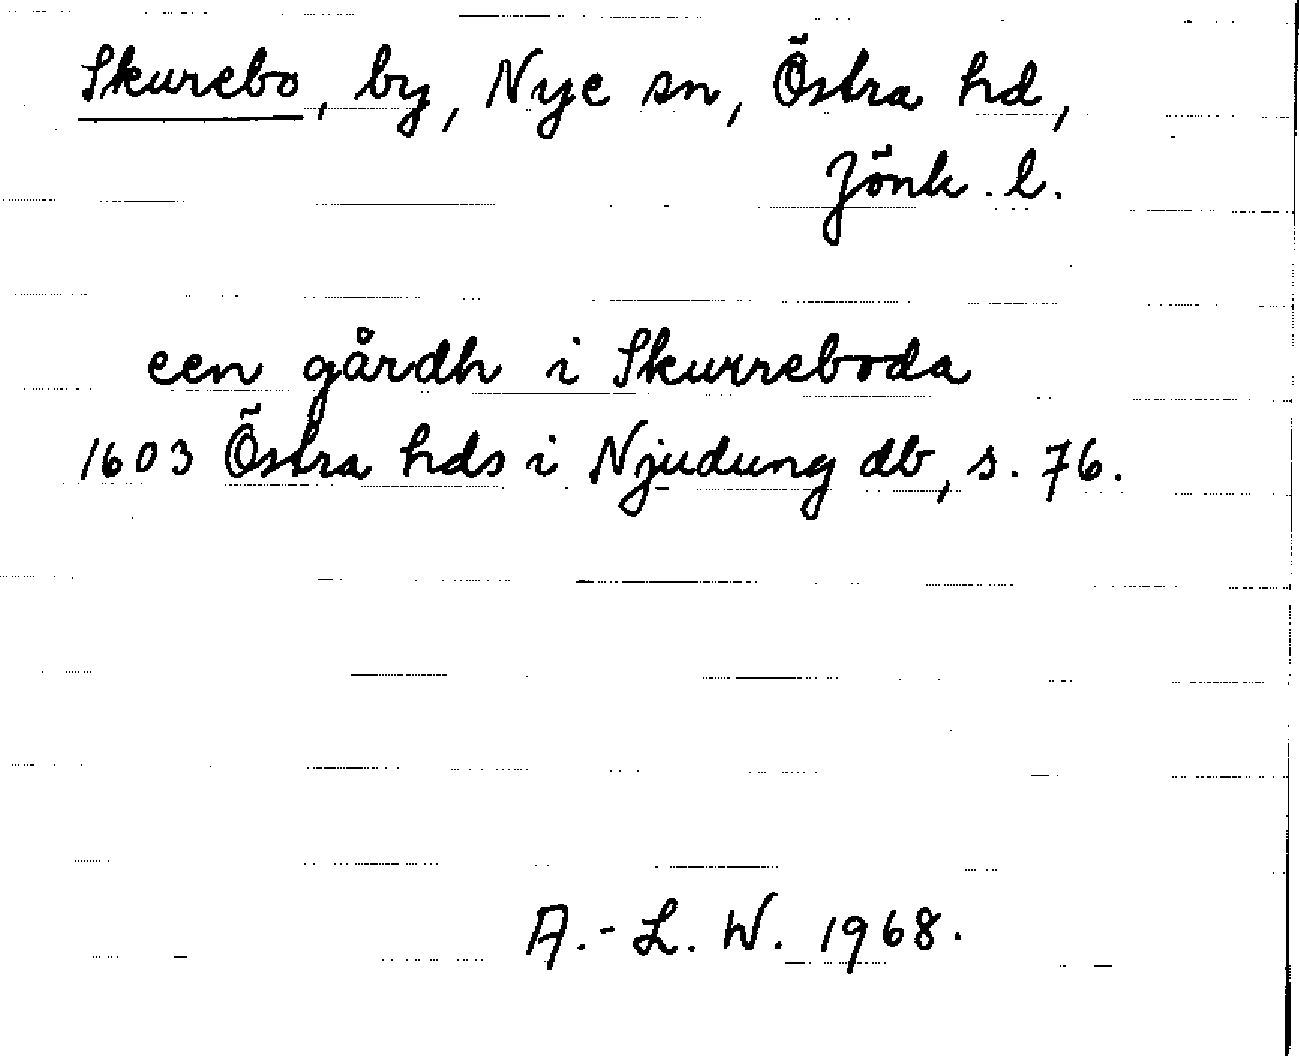 Skurebo, by, Nye sn, Östra hd,
Jönk. l.
een gårdh i Skurreboda
1603 Östra hds i Njudung db, s. 76.
A.-L. W. 1968.